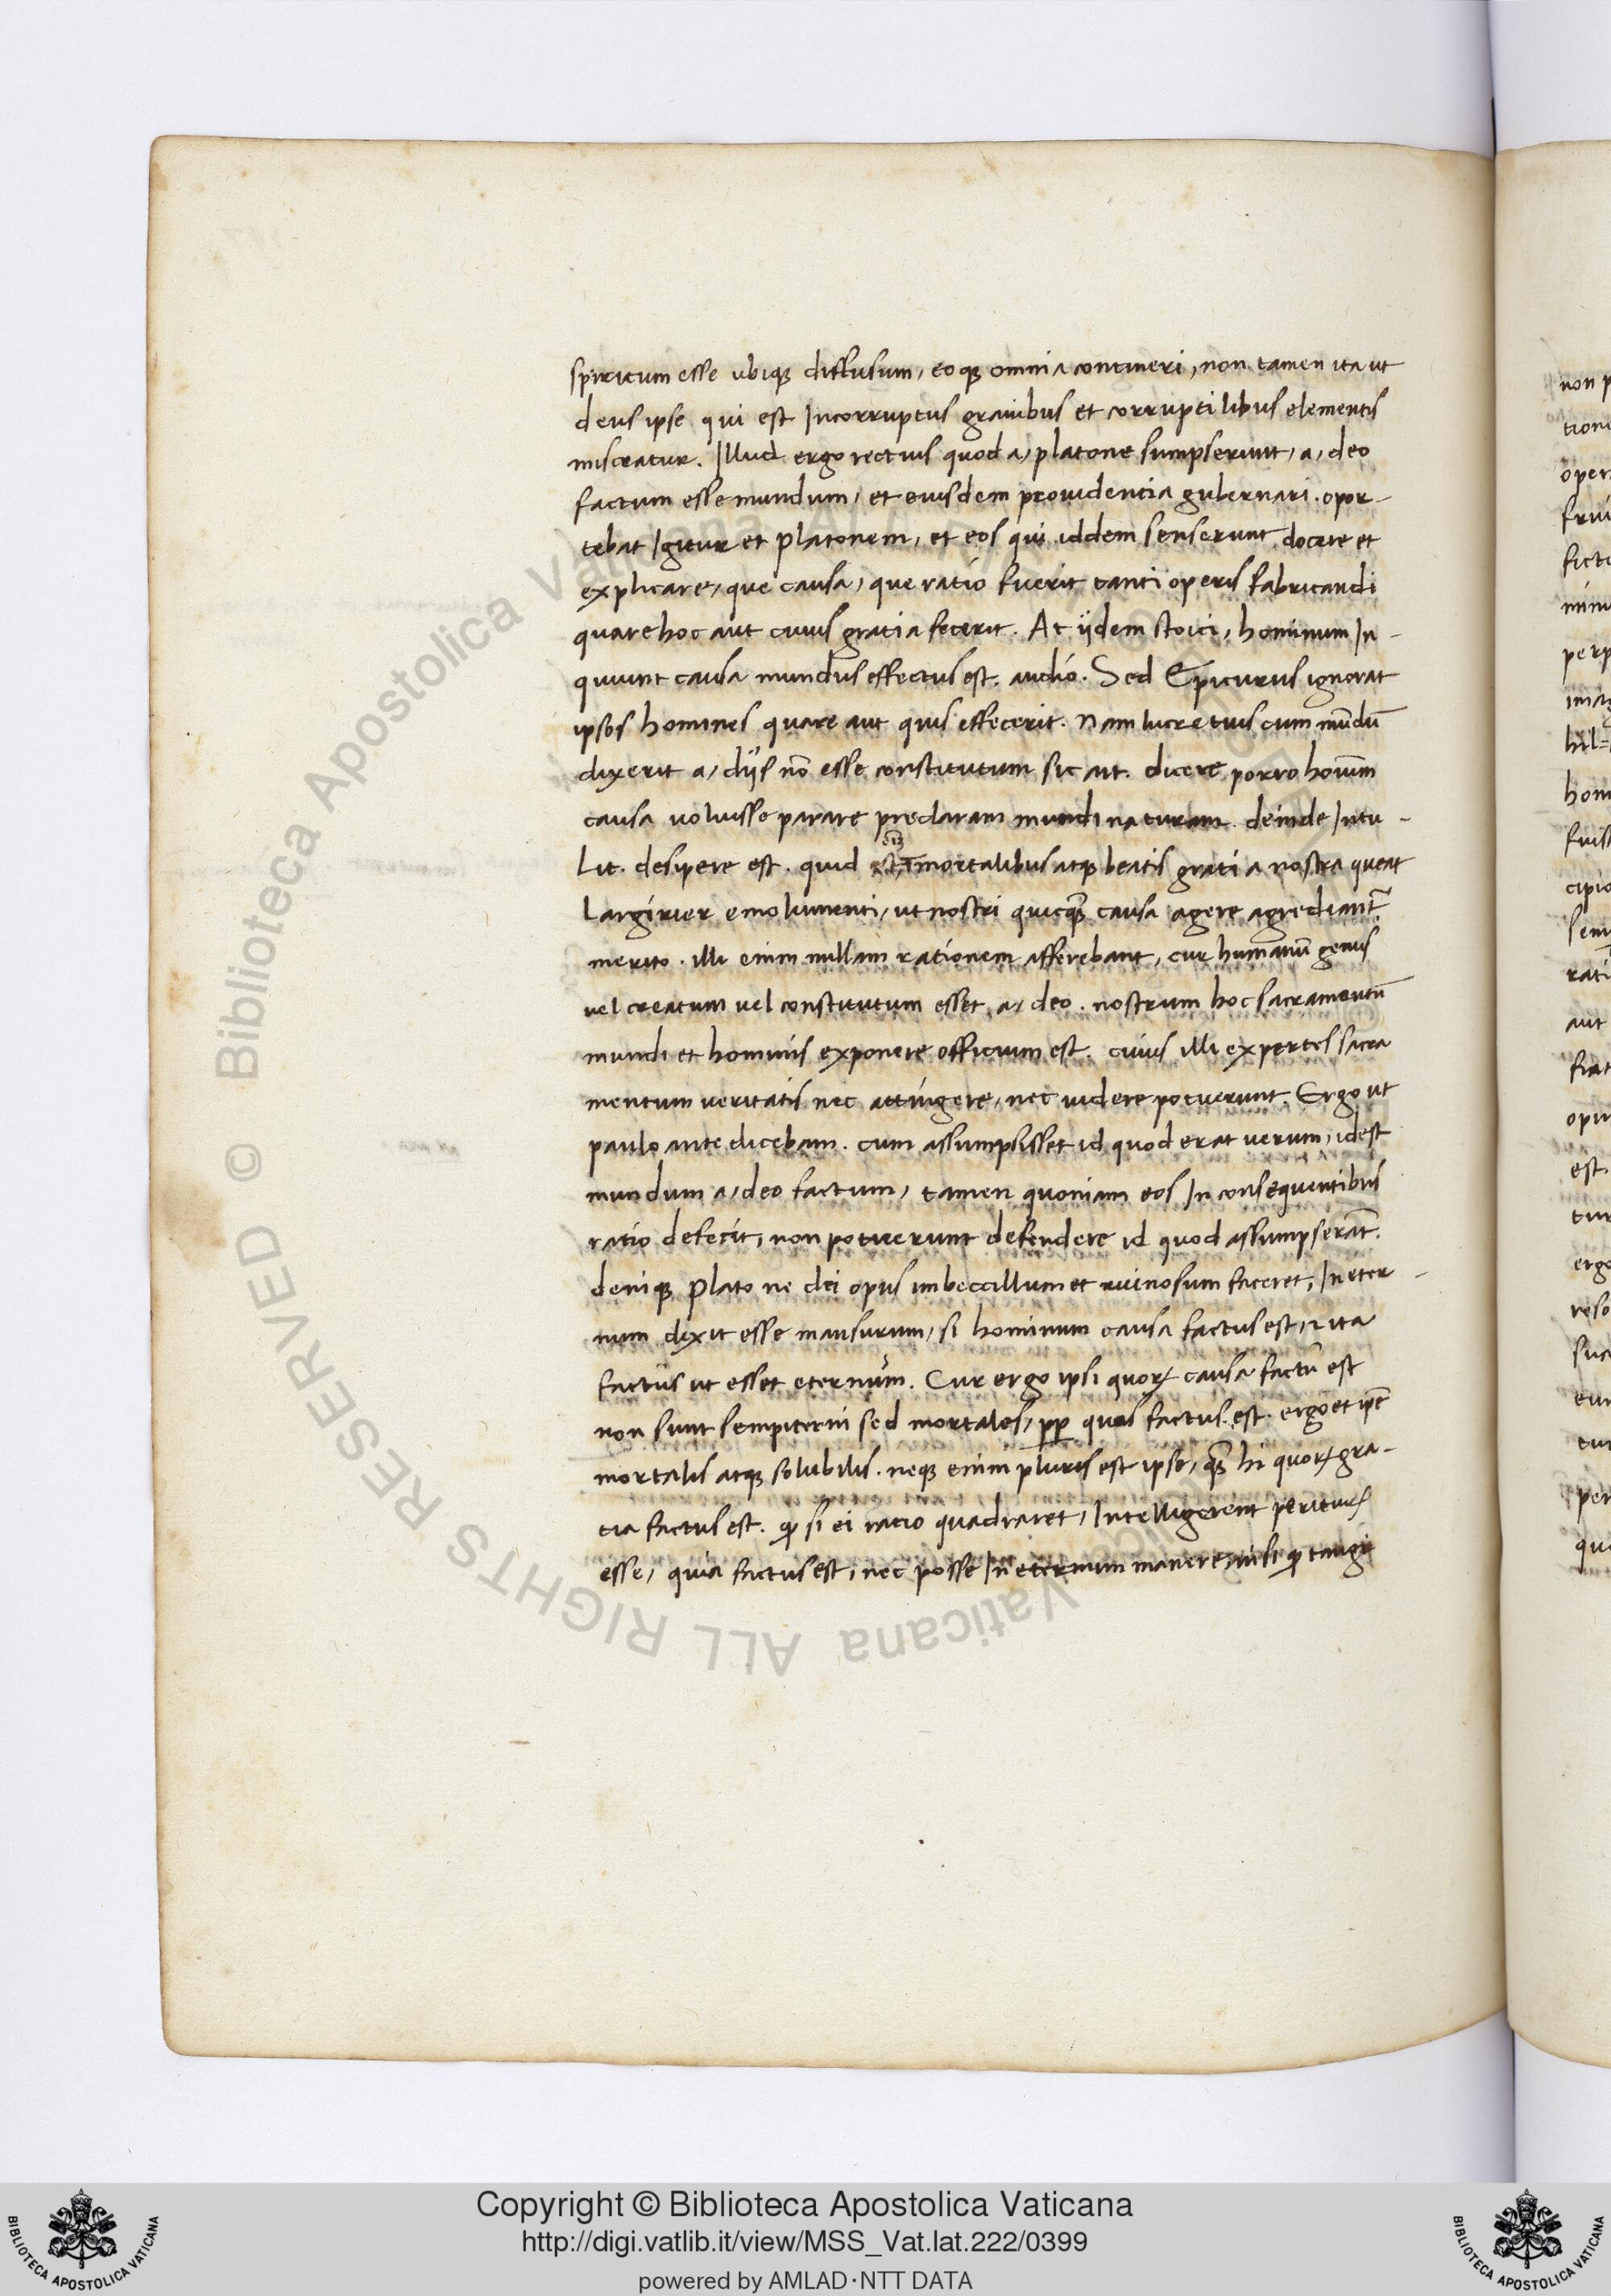 spiritum esse ubiqȝ diffusum, eoqȝ omnia contineri, non tamen ita ut
deus ipse qui est Incorruptus gravibus et corruptilibus elementis
misceatur. Illud ergo rectius quod a, platone sumpserunt, a, deo
factum esse mundum, et eiusdem providentia gubernari. opor-
tebat Igitur et Platonem, et eos qui iddem senserunt docere et
explicare, que causa, que ratio fuerit tanti operis fabricandi
quare hoc aut cuius gratia fecerit. At ijdem stoici, hominum In-
quiunt causa mundus effectus est. audio. Sed Epicurus ignorat
ipsos homines quare aut quis effecerit. Nam lucretius cum mūdū
dixerit a, dijs nō esse constitutum sic ait. dicere porro hoīum
causa voluisse parare preclaram mundi naturam. deinde Intu-
lit. desipere est. quid eīȝ Immortalibus atqȝ beatis gratia nostra queat
Largirier emolumenti, ut nostri quicqȝ̄ causa agere agrediant̄.
merito. illi enim nullam rationem afferebant, cur humanū genus
vel creatum vel constitutum esset a, deo. nostrum hoc sacramentū
mundi et hominis exponere officium est. cuius illi expertes sacra
mentum veritatis nec attingere, nec videre potuerunt. Ergo ut
paulo ante dicebam. cum assumpsisset id quod erat verum, idest
mundum a, deo factum, tamen quoniam eos In consequentibus
ratio defecit, non potuerunt defendere id quod assumpserāt.
deniqȝ Plato ne dei opus imbecillum et ruinosum faceret, In eter-
num dixit esse mansurum, si hominum causa factus est, et ita
factus ut esset eternum. Cur ergo ipsi quoꝝ causa factū est
non sunt sempiterni sed mortales, ꝓꝑ quos factus est. ergo et ip̄e
mortalis atqȝ solubilis. neqȝ enim pluris est ipse, qȝ̄ hi quoꝝ gra-
tia factus est. ꝙ si ei ratio quadraret, Intelligerent perituꝝ
esse, quia factus est, nec posse In eternum manere, nisi ꝙ tangi
non p
Copyright © Biblioteca Apostolica Vaticana
http://digi.vatlib.it/view/MSS_Vat.lat.222/0399
powered by AMLAD·NTT DATA